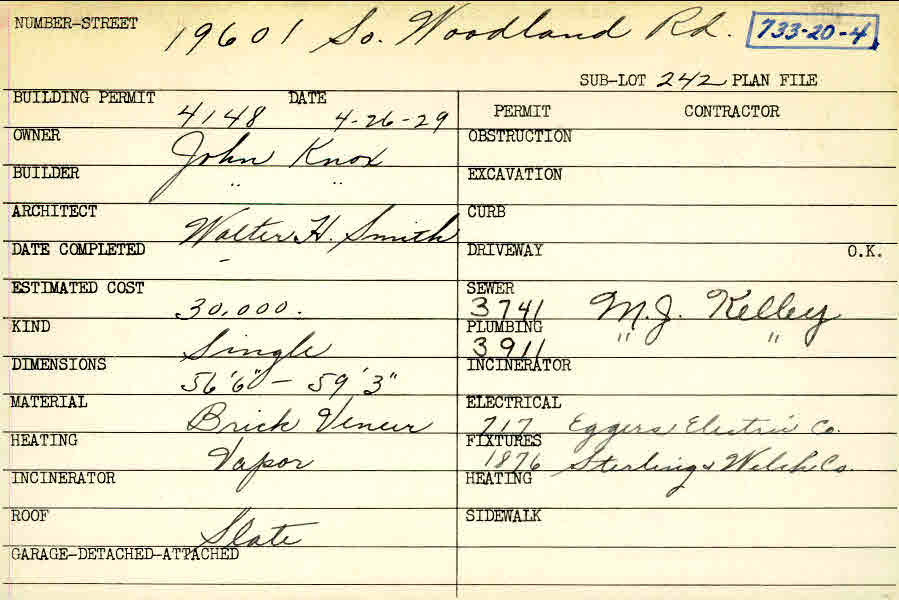 NUMBER-STREET 19601 So. Woodland Rd. 733-20-4
SUB-LOT 242 PLAN FILE
BUILDING PERMIT 4148 DATE 4-26-29
OWNER John Knox
BUILDER " "
ARCHITECT Walter H. Smith
DATE COMPLETED -
ESTIMATED COST 30,000.
KIND Single
DIMENSIONS 56'6" - 59'3"
MATERIAL Brick Veneer
HEATING Vapor
INCINERATOR
ROOF Slate
GARAGE-DETACHED-ATTACHED
PERMIT CONTRACTOR
OBSTRUCTION
EXCAVATION
CURB
DRIVEWAY O.K.
SEWER 3741 M.J. Kelley
PLUMBING 3911 " "
INCINERATOR
ELECTRICAL 717 Eggers Electric Co.
FIXTURES 1876 Sterling & Welch Co.
HEATING
SIDEWALK